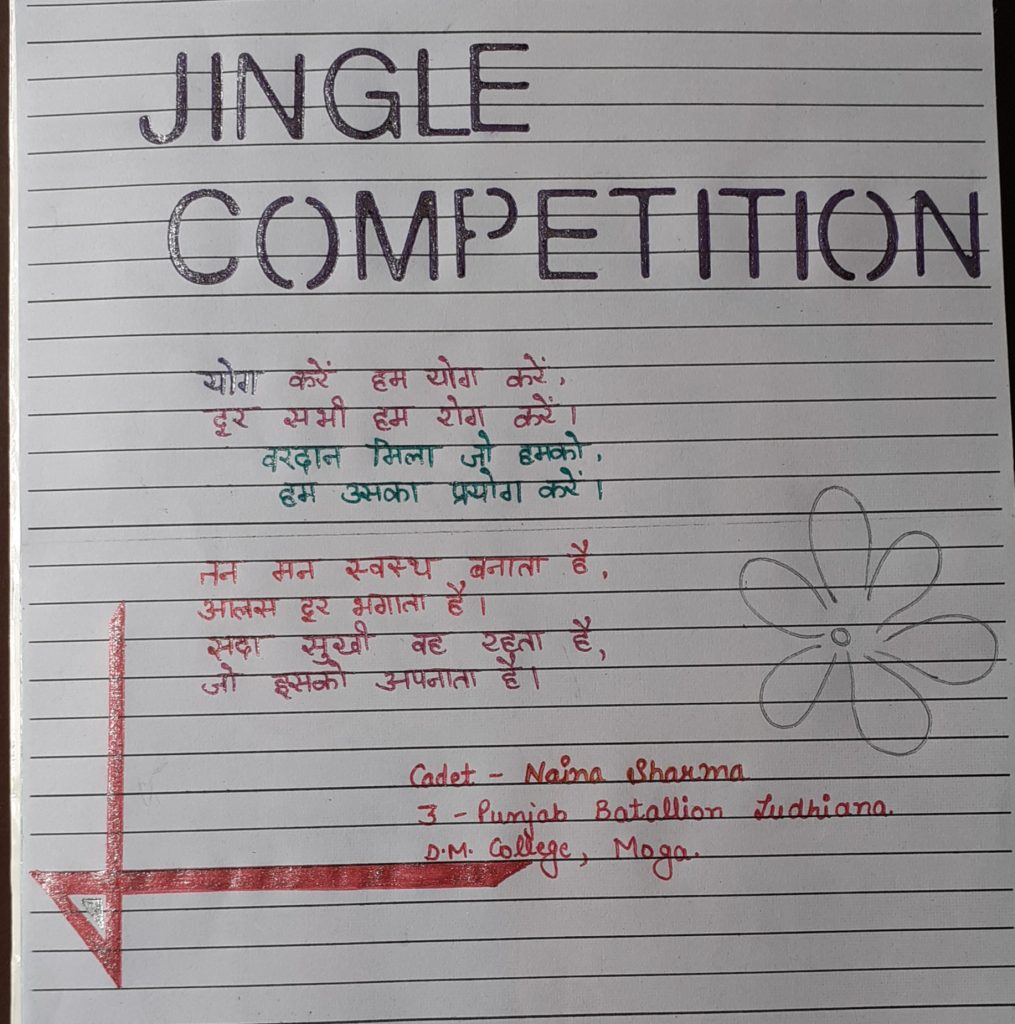 JINGLE
COMPETITION
योग करें हम योग करें,
दूर सभी हम रोग करें।
वरदान मिला जो हमको,
हम उसका प्रयोग करें।
तन मन स्वस्थ बनाता है,
आलस दूर भगाता है।
सदा सुखी वह रहता है,
जो इसको अपनाता है।
Cadet - Naina Sharma
3 - Punjab Batallion Ludhiana.
D.M. College, Moga.